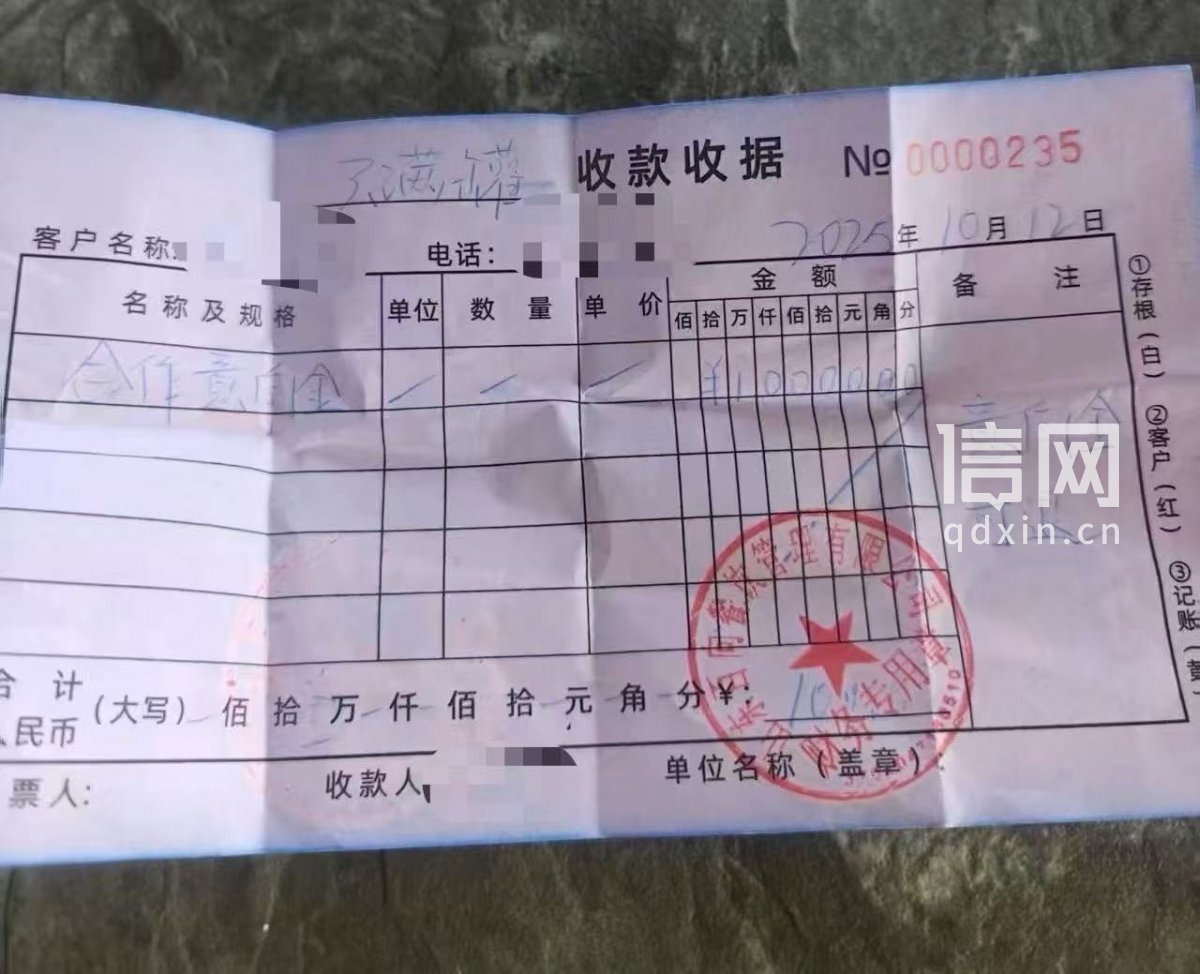 不满罐 收款收据 № 0000235
客户名称: 电话: 2025年10月12日
名称及规格 单位 数量 单价 金额 备注
佰 拾 万 仟 佰 拾 元 角 分
合作意向金 ¥1000000
意向金
信网
qdxin.cn
合计 人民币 (大写) 佰 拾 万 仟 佰 拾 元 角 分 ¥:
票人: 收款人 单位名称(盖章):
餐饮管理有限公司
财务专用章
①存根(白) ②客户(红) ③记账(黄